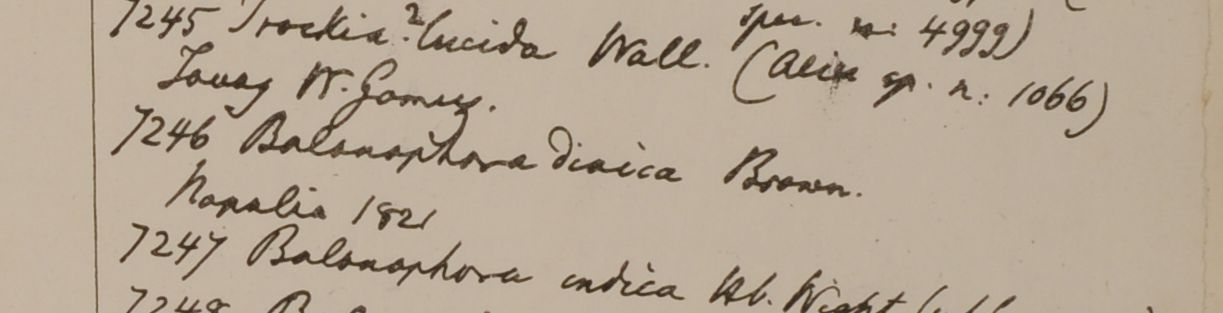 7245 Trockia? lucida Wall. (alia sp. n: 1066)
spec. n: 4999)
Tavoy W. Gomez.
7246 Balanophora dioica Brown.
Napalia 1821
7247 Balanophora indica Hb. Wight
7248